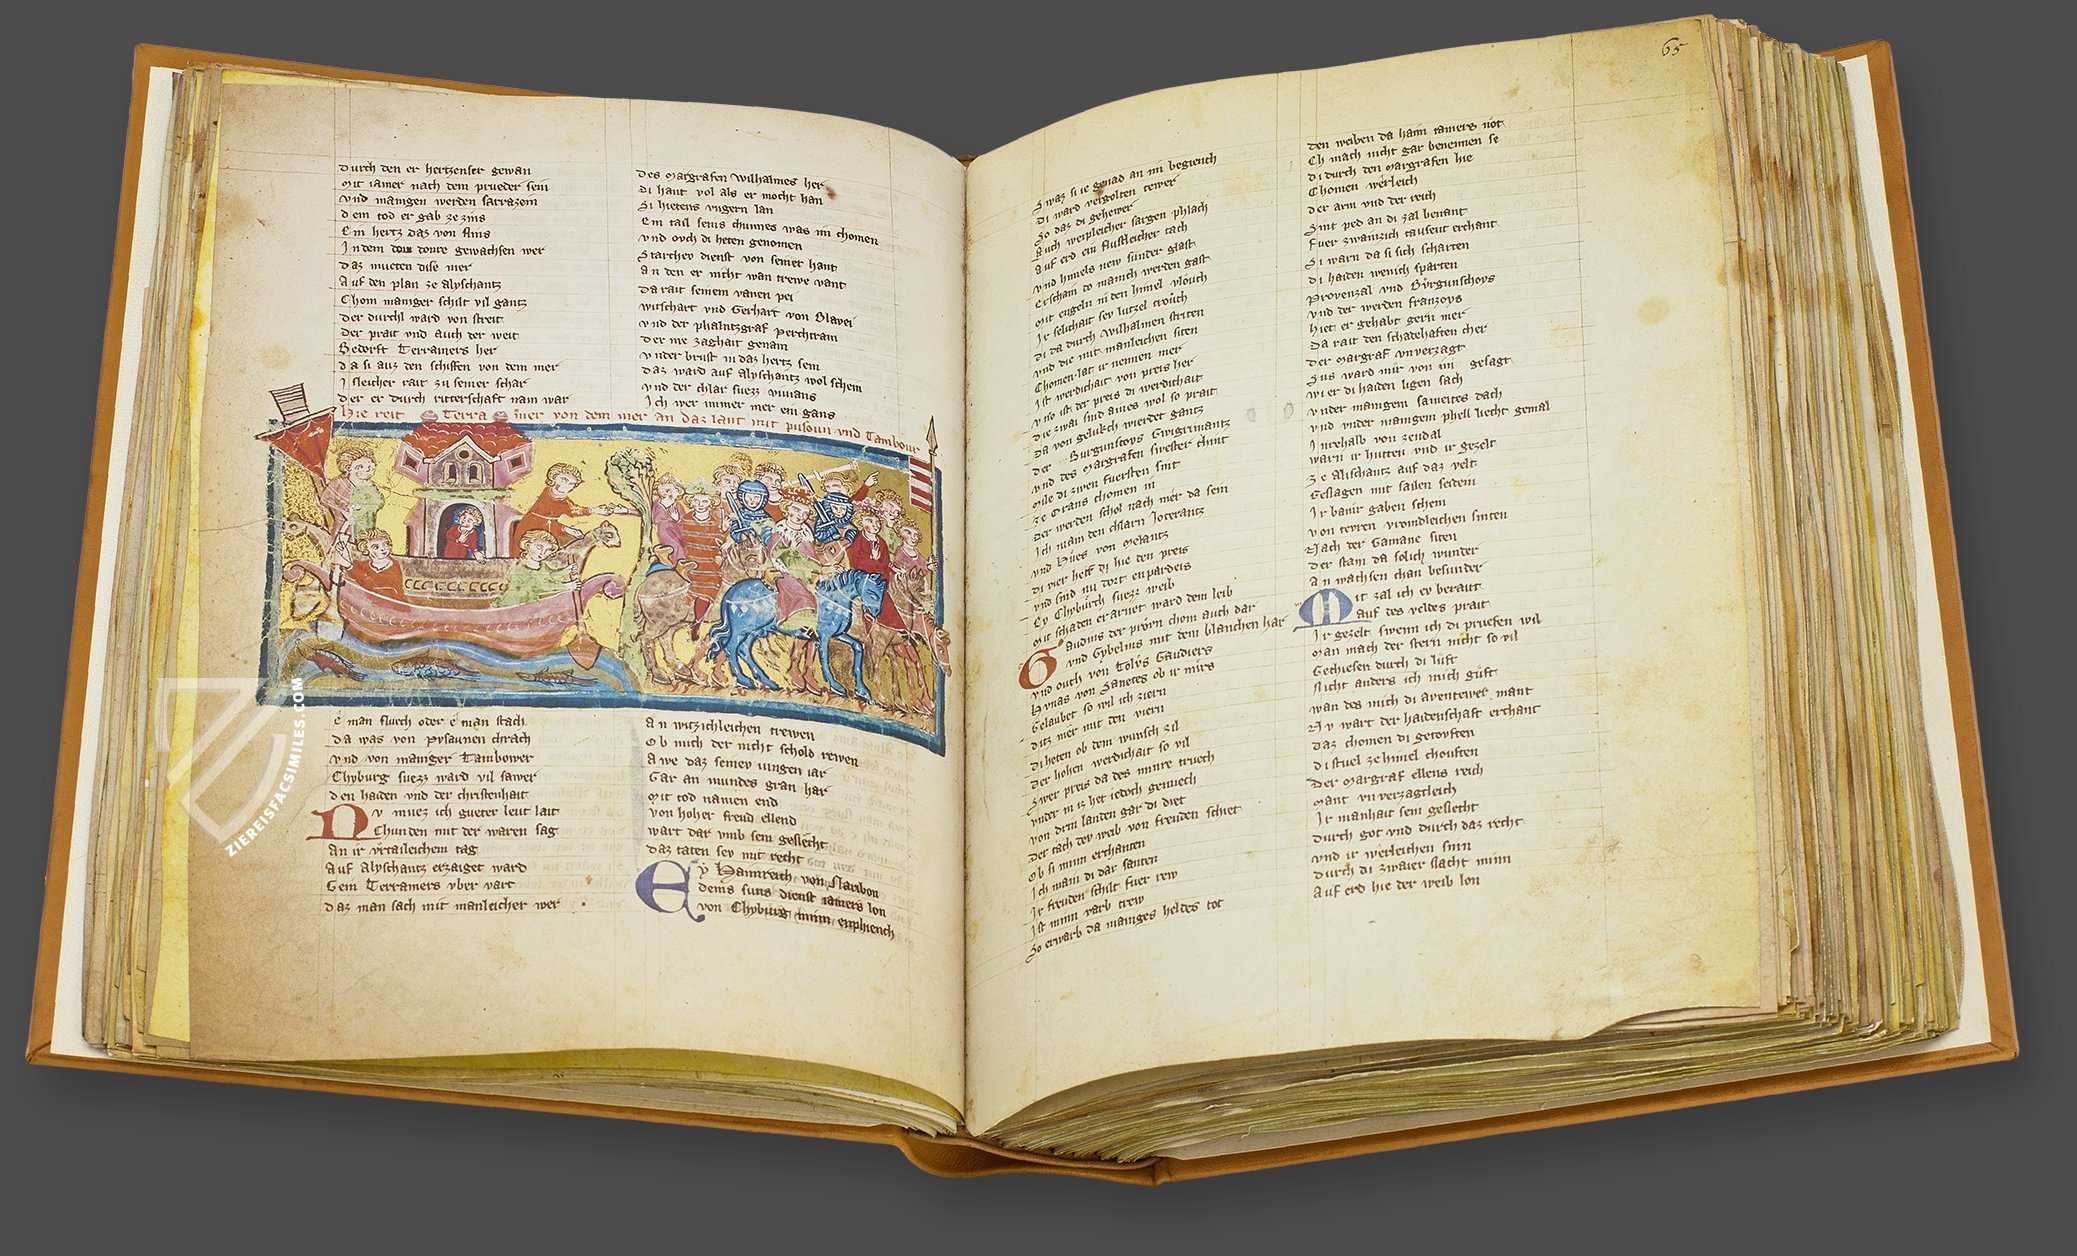 durch den er hertzenser gewan
mit iamer nach dem prueder sein
vnd manigen werden sarrazein
dem tod er gab ze zins
Ein hertz daz von flins
In dem donre gewachsen wer
daz mueten dise mer
Auf den plan ze alyschantz
Chom maniger schilt vil gantz
der durchl ward von streit
Der prait vnd auch der weit
Bedorft Terramers her
da si auz den schiffen von dem mer
Isleicher rait zu seiner schar
der er durch ritterschaft nam war
des Margrafen Wilhalmes her
di hant vol als er mocht han
Si hietens vngern lan
Ein tail seins chunnes was im chomen
vnd ovch di heten genomen
Starchev dienst von seiner hant
An den er nicht wan trewe vant
da rait seinem vanen pei
witschart vnd Gerhart von Blavei
vnd der phalntzgraf Perchtram
der nie zaghait genam
vnder brust in daz hertz sein
daz ward auf alyschantz wol schein
vnd der chlar suezz vivians
Ich wer immer mer ein gans
Hie reit Terramer von dem mer an daz lant mit pusoun vnd Tambour
e man fluech oder e man stach
da was von pysaunen chrach
vnd von maniger Tambower
Chyburg suezz ward vil sawer
den haiden vnd der christenhait
Nv muez ich gueter leut lait
Chunden mit der waren sag
An ir vrtaileichem tag
Auf Alyschantz erzaiget ward
Gein Terramers vber vart
daz man sach mit manleicher wer
An witzichleichen trewen
Ob mich der nicht schold rewen
Awe daz seinev iungen iar
Gar an mundes gran har
mit tod namen end
von hoher freud ellend
wart dar vmb sein geslecht
daz taten sev mit recht
Ey Hainreich von Naribon
deins suns dienst iamers lon
von Chyburg minn enphiench
65
Swaz si ie genad an im begiench
Di ward vergolten tewer
So daz di gehewer
Auch weipleicher sargen phlach
Auf erd ein flustleicher tach
vnd himels new sunder glast
Erschain do manich werden gast
mit engeln in den himel vlouch
Ir selichait sev lutzel trouch
di da durch Wilhalmen striten
vnd die mit manleichen siten
Chomen lat ir nennen mer
Ist werdichait von preis her
vnd ist der preis di werdichait
die zwai sind aines wol so prait
Da von gelukch wierdet gantz
der Burgunschoys Gwigrimantz
vnd des Margrafen swester chint
mile di zwen fuersten sint
ze Orans chomen in
Der werden schol nach mer da sein
Ich main den chlarn Iozerantz
vnd Hues von Melantz
di vier heft di hie den preis
vnd sind nu dort en pardeis
Ey Chyburch suezz weib
mit schaden erarnet ward dein leib
Gaudins der provn chom auch dar
vnd Gybelins mit dem blanchen har
vnd ovch von Tolus Gaudiers
Hunas von Sanctes ob ir mirs
Gelaubet so wil ich ziern
ditz mer mit den viern
di heten ob dem wunsch zil
der hohen werdichait so vil
Swer preis da des minre truech
vnder in iz het iedoch genuech
von drin landen gar di diet
Der tach dev weib von freuden schiet
Ob si minn erchanten
Ich main di dar santen
Ir freuden schilt fuer rew
Ist minn warb trew
So erwarb da maniges heldes tot
den weiben da haim iamers not
Ich mach nicht gar benennen se
di durch den margrafen hie
Chomen werleich
der arm vnd der reich
Sint ped an di zal benant
Fuer zwainzich tausent erchant
Si warn da si sich scharten
di haiden wenich sparten
Provenzal vnd Burgunschoys
vnd der werden franzoys
hiet er gehabt gern mer
Da rait den schadehaften cher
der Margraf vnverzagt
Sus ward mir von im gesagt
wi er di haiden ligen sach
vnder manigem sameites dach
vnd vnder manigem phell liecht gemal
Innrehalb von zendal
warn ir hutten vnd ir gezelt
ze Alischantz auf daz velt
Geslagen mit sailen seidein
Ir banir gaben schein
von tevren vromdleichen sinten
Nach der Gamane siten
der stam da solich wunder
An wachsen chan besunder
Mit zal ich ev berait
auf des veldes prait
Ir gezelt swenn ich di pruefen wil
man mach der stern nicht so vil
Gechiesen durch di luft
Nicht anders ich mich guft
wan des mich di aventewer mant
Nv wart der haidenschaft erchant
daz chomen di getovften
di stuel ze himel chouften
Der Margraf ellens reich
mant vnverzagtleich
Ir manhait sein geslecht
durch got vnd durch daz recht
vnd ir werleichen sinn
durch di zwaier slacht minn
Auf erd hie der weib lon
ZIEREISFACSIMILES.COM